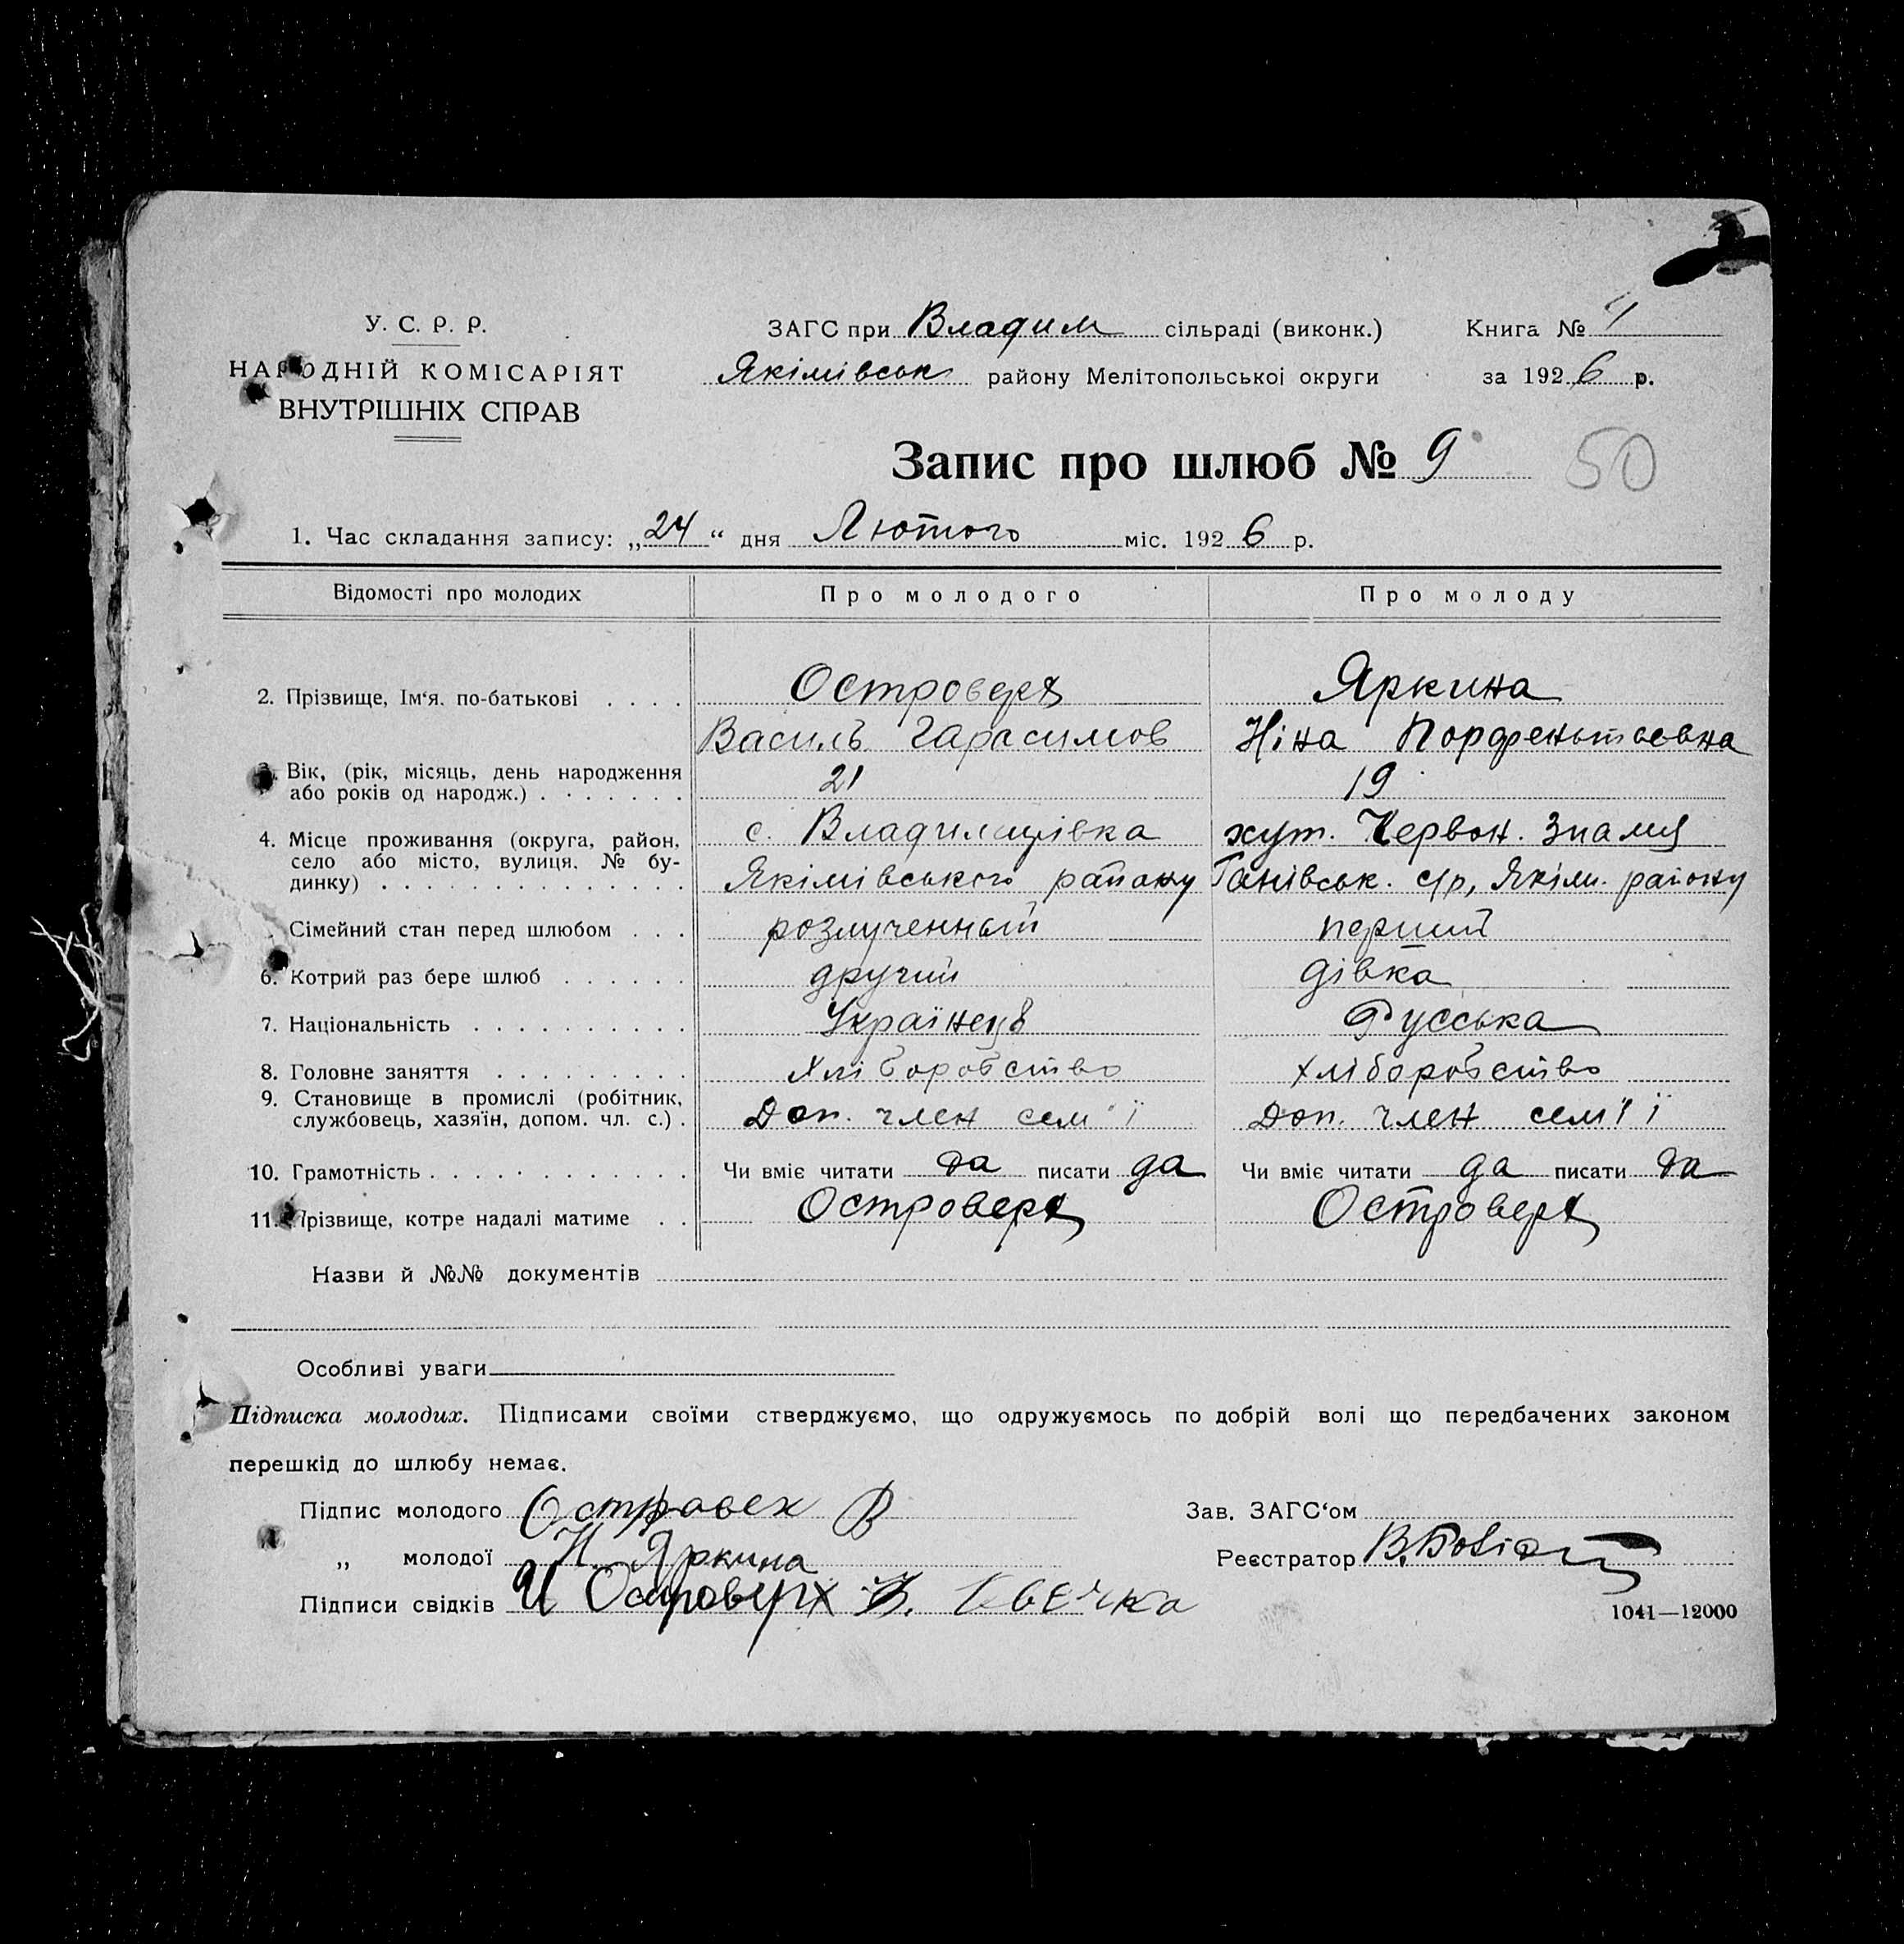 У. С. Р. Р.
НАРОДНІЙ КОМІСАРІЯТ
ВНУТРІШНІХ СПРАВ
ЗАГС при Владим сільраді (виконк.)
Якімівськ району Мелітопольської округи
Книга №
за 1926 р.
Запис про шлюб № 9
50
1. Час складання запису: „24“ дня Лютого міс. 1926 р.
Відомості про молодих Про молодого Про молоду
2. Прізвище, Ім‘я. по-батькові . . . . Островерх Яркина
Василь Гарасимов Ніна Порфентьевна
3. Вік, (рік, місяць, день народження 21 19
або років од народж.) . . . . . . .
4. Місце проживання (округа, район, с. Владимирівка хут. Червон. Знамя
село або місто, вулиця, № бу-
динку) . . . . . . . . . . . . . . Якімівського району Ганівськ. с/р, Якім. району
Сімейний стан перед шлюбом . . . розлученный перший
6. Котрий раз бере шлюб . . . . . . другий дівка
7. Національність . . . . . . . . . . Українець Русська
8. Головне заняття . . . . . . . . . Хліборобство хліборобство
9. Становище в промислі (робітник,
службовець, хазяїн, допом. чл. с.) . Доп. член сем'ї Доп. член сем'ї
10. Грамотність . . . . . . . . . . . . Чи вміє читати да писати да Чи вміє читати да писати да
11. Прізвище, котре надалі матиме . . Островерх Островерх
Назви й №№ документів
Особливі уваги
Підписка молодих. Підписами своїми стверджуємо, що одружуємось по добрій волі що передбачених законом
перешкід до шлюбу немає.
Підпис молодого Островех В
„ молодої Н. Яркина
Підписи свідків И Островерх
Зав. ЗАГС‘ом
Реєстратор
1041—12000